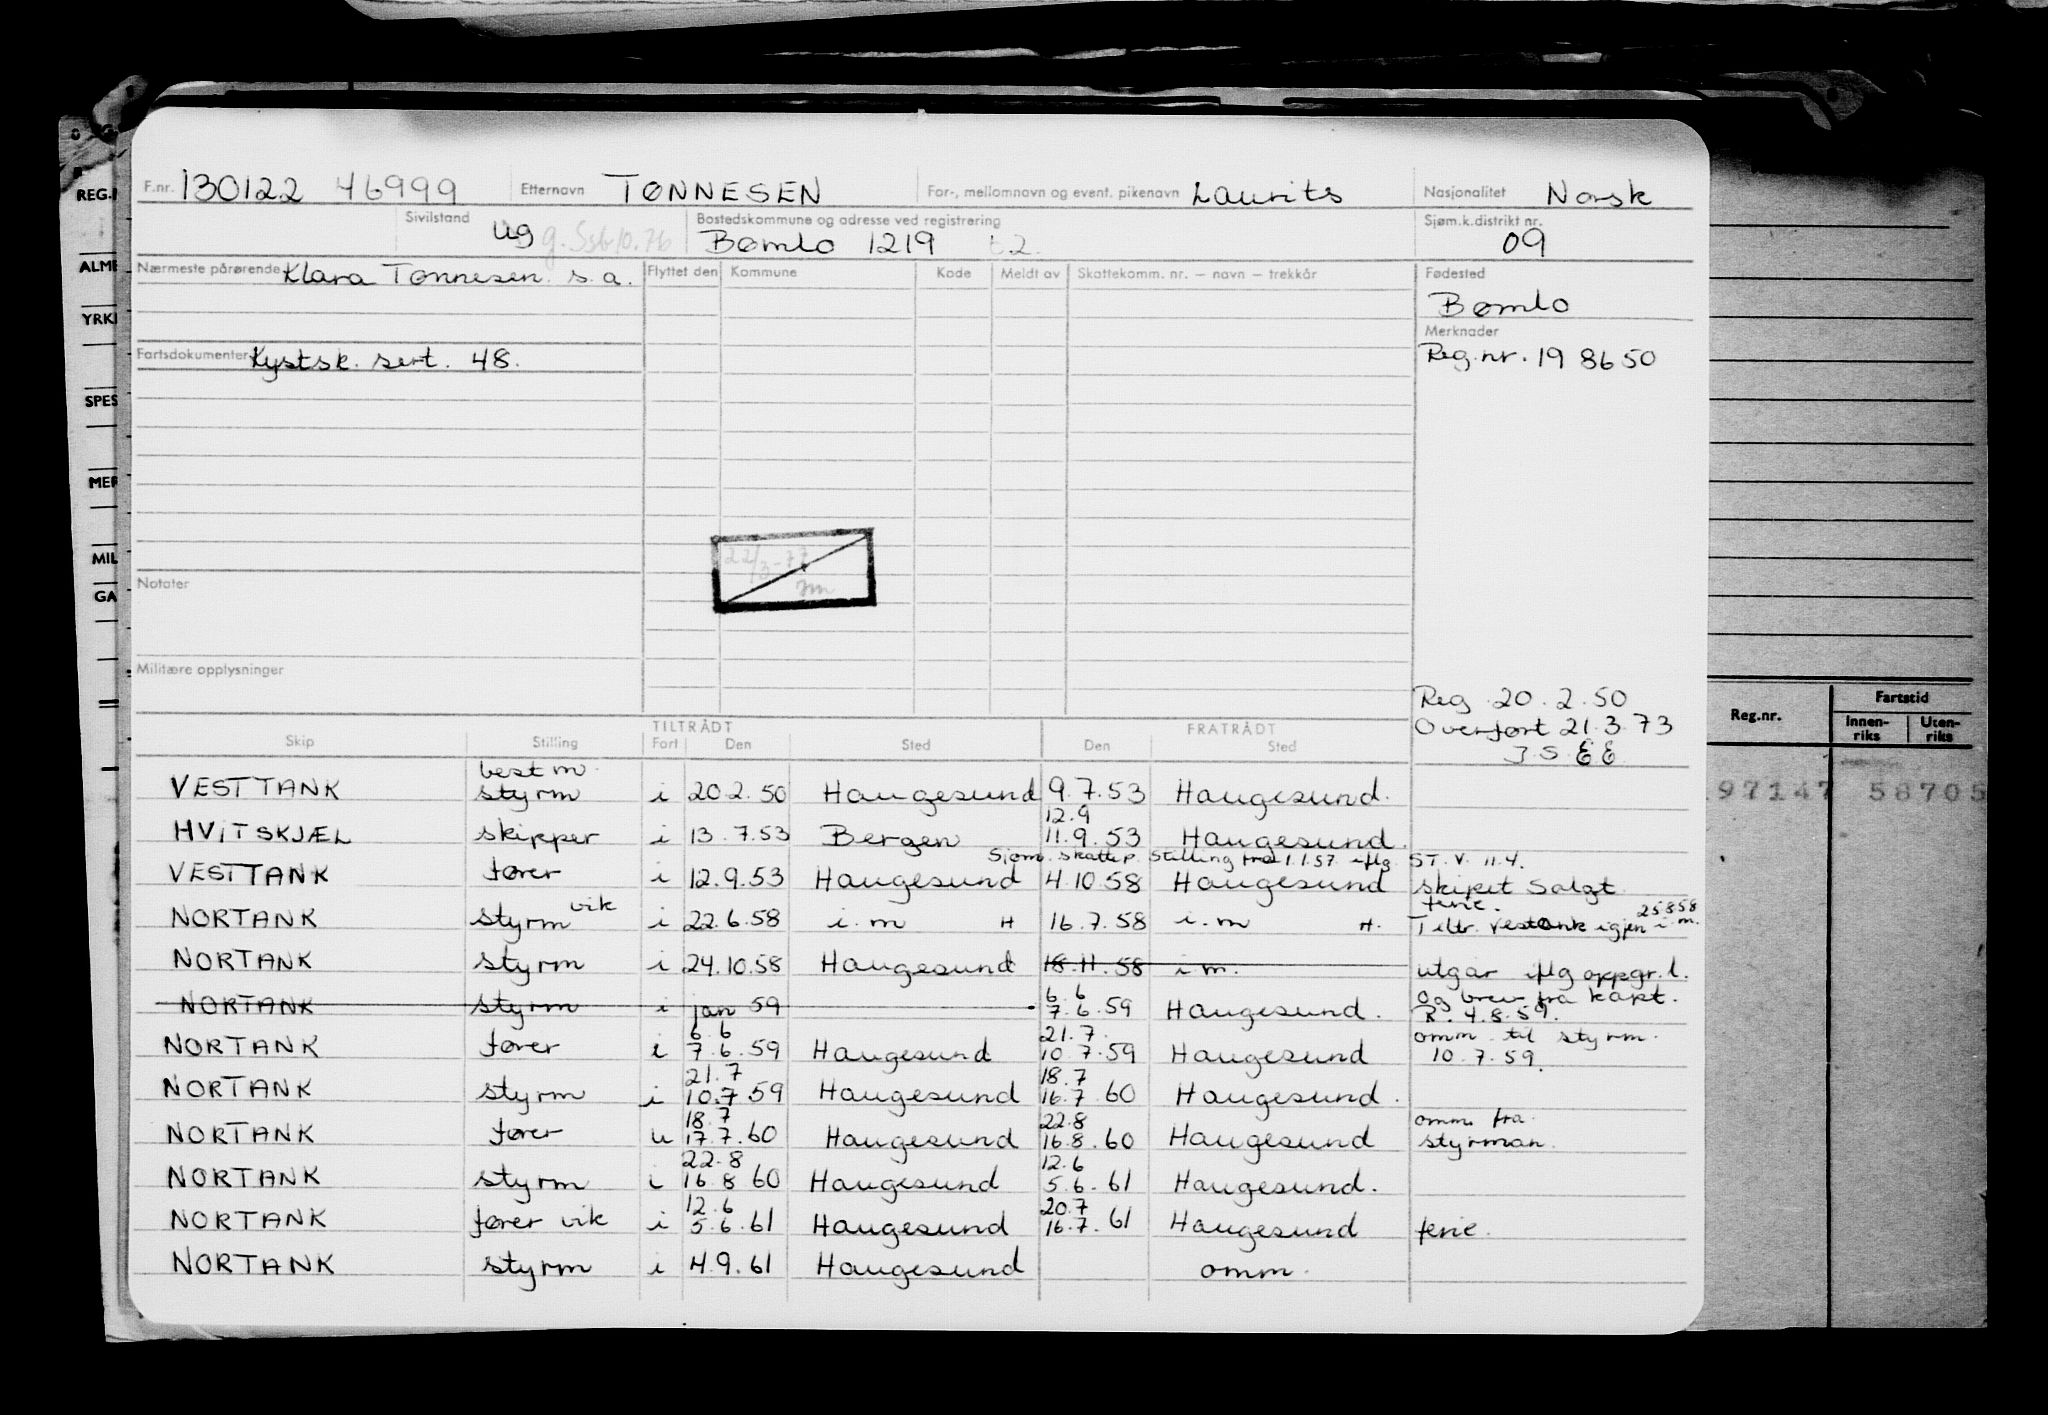 F.nr. 130122 46999 Etternavn TØNNESEN For-, mellomnavn og event. pikenavn Laurits Nasjonalitet Norsk
Sivilstand ug Bostedskommune og adresse ved registrering Bømlo 1219 Sjøm.k.distrikt nr. 09
Nærmeste pårørende Klara Tønnesen s.a. Flyttet den Kommune Kode Meldt av Skattekomm. nr. – navn – trekkår Fødested
Bømlo
Merknader
Fartsdokumenter Kystsk. sert. 48. Reg.nr. 19 8650
22/3-77
Notater
Militære opplysninger
Reg. 20.2.50
Overført 21.3.73
J.S. EE
TILTRÅDT FRATRÅDT
Skip Stilling Fart Den Sted Den Sted
best m.
VESTTANK styrm i 20.2.50 Haugesund 9.7.53 Haugesund.
12.9
HVITSKJÆL skipper i 13.7.53 Bergen 11.9.53 Haugesund.
Sjøm. skattep. stilling fra 1.1.57 iflg. ST.V. 11.4.
VESTTANK fører i 12.9.53 Haugesund 4.10.58 Haugesund skipet solgt
vik ferie. 25.8.58
NORTANK styrm i 22.6.58 i.m H 16.7.58 i.m H. Tiltr. Vestank igjen i.m.
NORTANK styrm i 24.10.58 Haugesund 18.11.58 i.m. utgår iflg oppgr.l.
6.6 og brev fra kapt.
NORTANK styrm i jan 59 7.6.59 Haugesund. R. 4.8.59.
6.6 21.7. omm. til styrm.
NORTANK fører i 7.6.59 Haugesund 10.7.59 Haugesund 10.7.59.
21.7 18.7
NORTANK styrm i 10.7 59 Haugesund 16.7 60 Haugesund.
18.7 22.8 omm. fra
NORTANK fører u 17.7.60 Haugesund 16.8.60 Haugesund styrman.
22.8 12.6
NORTANK styrm i 16.8 60 Haugesund 5.6.61 Haugesund.
12.6 20.7
NORTANK fører vik i 5.6.61 Haugesund 16.7.61 Haugesund ferie.
NORTANK styrm i 4.9.61 Haugesund omm.
REG.
ALME
YRK
SPES
MER
MIL
GA
Reg.nr. Fartstid
Innen-riks Uten-riks
97147 58705